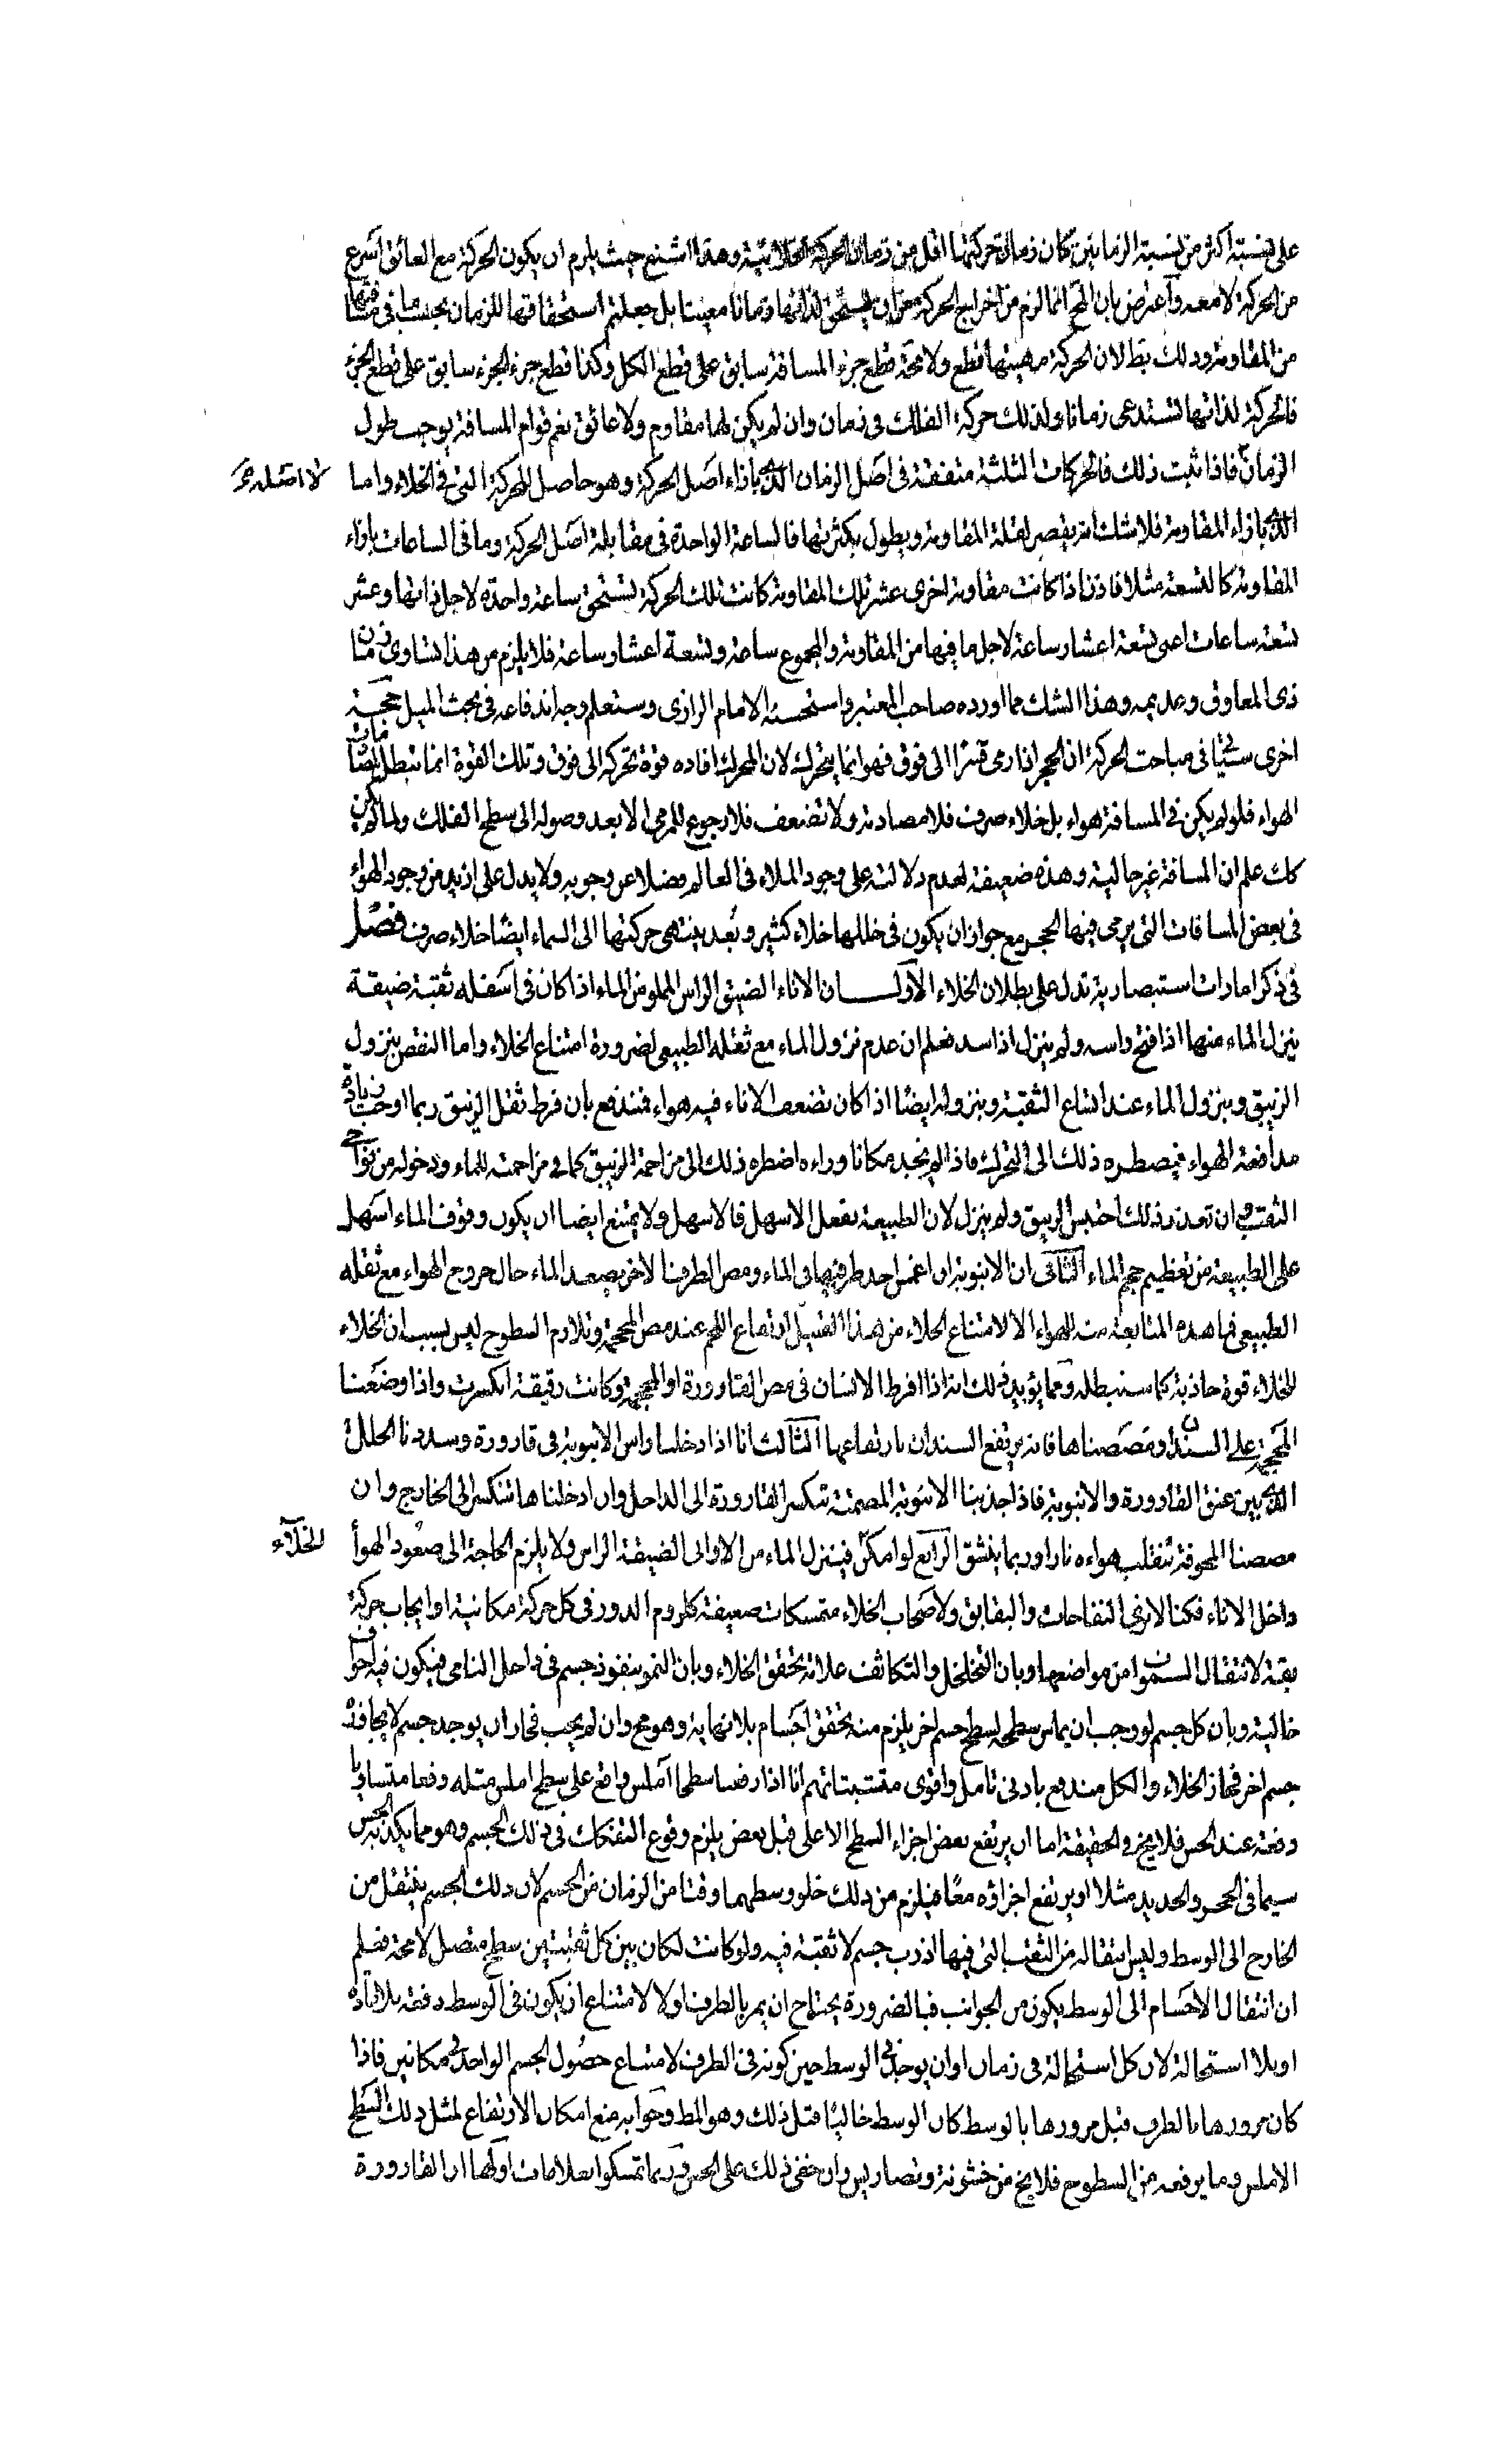 على نسبة اكثر من نسبة الزمانين كان زمان حركتها اقل من زمان الحركة الخلائية وهذا اشنع حيث يلزم ان يكون الحركة مع العائق اسرع
من الحركة لا معه وآعترض بان المح انما لزم من اخراج الحركة عن ان يستحق لذاتها زمانا معينا بل جعلتم استحقاقها للزمان بحسب ما فى مسافتها
من المقاومة وذلك بط لان الحركة مهيتها قطع ولا محة قطع جزء المسافة سابق على قطع الكل وكذا قطع جزء الجزء سابق على قطع الجزء
فالحركة لذاتها تستدعى زمانا ولذلك حركة الفلك فى زمان وان لم يكن لها مقاوم ولا عائق نعم قوام المسافة يوجب طول
الزمان فاذا ثبت ذلك فالحركات الثلثة متفقة فى اصل الزمان الذى باذاء اصل الحركة وهو حاصل للحركة التى فى الخلاء واما
الذى باذاء المقاومة فلا شك انه يقصر لقلة المقاومة ويطول بكثرتها فالساعة الواحدة فى مقابلة اصل الحركة وما فى الساعات باذاء
المقاومة كالتسعة مثلا فاذن اذا كانت مقاومة اخرى عشر تلك المقاومة كانت تلك الحركة تستحق ساعة واحدة لاجل ذاتها وعشر
تسعة ساعات اعنى تسعة اعشار ساعة لاجل ما فيها من المقاومة والمجموع ساعة وتسعة اعشار ساعة فلا يلزم من هذا تساوى زمانا
ذى المعاوق وعديمه وهذا الشك مما اورده صاحب المعتبر واستحسنه الامام الرازى وستعلم وجه اندفاعه فى بحث الميل حجة
اخرى سيأتى فى مباحث الحركة ان الحجر اذا رمى قسرا الى فوق فهو انما يتحرك لان المحرك افاده قوة تحركه الى فوق وتلك القوة انما تبطل بمصادمات
الهواء فلو لم يكن فى المسافة هواء بل خلاء صرف فلا مصادمة ولا تضعف فلا رجوع للمرمى الا بعد وصوله الى سطح الفلك ولما لم يكن
كك علم ان المسافة غير خالية وهذه ضعيفة لعدم دلالته على وجود الملاء فى العالم فضلا عن وجوبه ولا يدل على ازيد من وجود الهواء
فى بعض المسافات التى يرمى فيها الحجر مع جواز ان يكون فى خللها خلاء كثير وبعد ينتهى حركتها الى السماء ايضا خلاء صرف فصل
فى ذكر امارات استبصارية تدل على بطلان الخلاء الآول ان الاناء الضيق الراس المملو من الماء اذا كان فى اسفله ثقبة ضيقة
ينزل الماء منها اذا فتح راسه ولم ينزل اذا سد فعلم ان عدم نزول الماء مع ثقله الطبيعى لضرورة امتناع الخلاء واما النقض بنزول
الزيبق وبنزول الماء عند اتساع الثقبة وبنزوله ايضا اذا كان نضعف الاناء فيه هواء فمندفع بان فرط ثقل الزيبق ربما اوجب زيادة
مدافعة الهواء فيضطره ذلك الى التحرك فاذا لم يجد مكانا وراءه اضطره ذلك الى مزاحمة الزيبق كما فى مزاحمته للماء ودخوله من نواحى
الثقب وان تعذر ذلك احتبس الزيبق ولم ينزل لان الطبيعة يفعل الاسهل فالاسهل ولا يمتنع ايضا ان يكون وقوف الماء اسهل
على الطبيعة من تعظيم حجم الماء الثآنى ان الانبوبة اذا غمس احد طرفيها فى الماء ومص الطرف الآخر يصعد الماء حال خروج الهواء مع ثقله
الطبيعى فما هذه المتابعة منه للهواء الا لامتناع الخلاء من هذا القبيل ارتفاع اللحم عند مص المحجمة وتلازم السطوح ليس بسبب ان الخلاء
للخلاء قوة جاذبة كما سنبطله ومما يؤيد ذلك انه اذا افرط الانسان فى مص القارورة او المحجمة وكانت رقيقة انكسرت واذا وضعنا
المحجمة على السندان ومصصناها فانه يرتفع السندان بارتفاعها الثآلث انا اذا دخلنا راس الانبوبة فى قارورة وسددنا الخلل
الذى بين عنق القارورة والانبوبة فاذا جذبنا الانبوبة المصمتة تنكسر القارورة الى الداخل وان ادخلناها تنكسر الى الخارج وان
مصصنا المجوفة تنقلب هواءه نارا وربما ينشق الرآبع لو امكن فينزل الماء من الاوانى الضيقة الراس ولا يلزم الحاجة الى صعود الهوا
داخل الاناء فكنا لا نرى النفاخات والبقابق ولاصحاب الخلاء متمسكات ضعيفة كلزوم الدور فى كل حركة مكانية او ايجاب حركة
بقة لانتقال السموات من مواضعها وبان التخلخل والتكاثف علامة تحقق الخلاء وبان النمو بنفوذ جسم فى داخل النامى فيكون فيه اجواف
خالية وبان كل جسم لو وجب ان يماس سطحه لسطح جسم اخر يلزم منه تحقق اجسام بلا نهاية وهو مح وان لم يجب فجاز ان يوجد جسم لا يجاوزه
جسم اخر فجاز الخلاء والكل مندفع بادنى تامل واقوى متشبثاتهم انا اذا رفعنا سطحا املس واقع على سطح املس مثله رفعا متساويا
دفعة عند الحس فلا يخ فى الحقيقة اما ان يرتفع بعض اجزاء السطح الاعلى قبل بعض يلزم وقوع التفكك فى ذلك الجسم وهو مما يكذبه الحس
سيما فى الحجر والحديد مثلا او يرتفع اجزاؤه معا فيلزم من ذلك خلو وسطهما وقتا من الزمان من الجسم لان ذلك الجسم ينتقل من
الخارج الى الوسط وليس انتقاله من الثقب التى فيها اذ رب جسم لا ثقبة فيه ولو كانت لكان بين كل ثقبتين سطح متصل لا محة فعلم
ان انتقال الاجسام الى الوسط يكون من الجوانب فبالضرورة يحتاج ان يمر بالطرف اولا لامتناع ان يكون فى الوسط دفعة بلا
او بلا استحالة لان كل استحالة فى زمان او ان يوجد فى الوسط حين كونه فى الطرف لامتناع حصول الجسم الواحد فى مكانين فاذا
كان مرورها بالطرف قبل مرورها بالوسط كان الوسط خاليا قبل ذلك وهو المط وجوابه منع امكان الارتفاع لمثل ذلك السطح
الاملس وما يرفعه من السطوح فلا يخ من خشونة وتضاريس وان خفى ذلك على الحس وربما تمسكوا بعلامات اولها ان القارورة
للخلآء